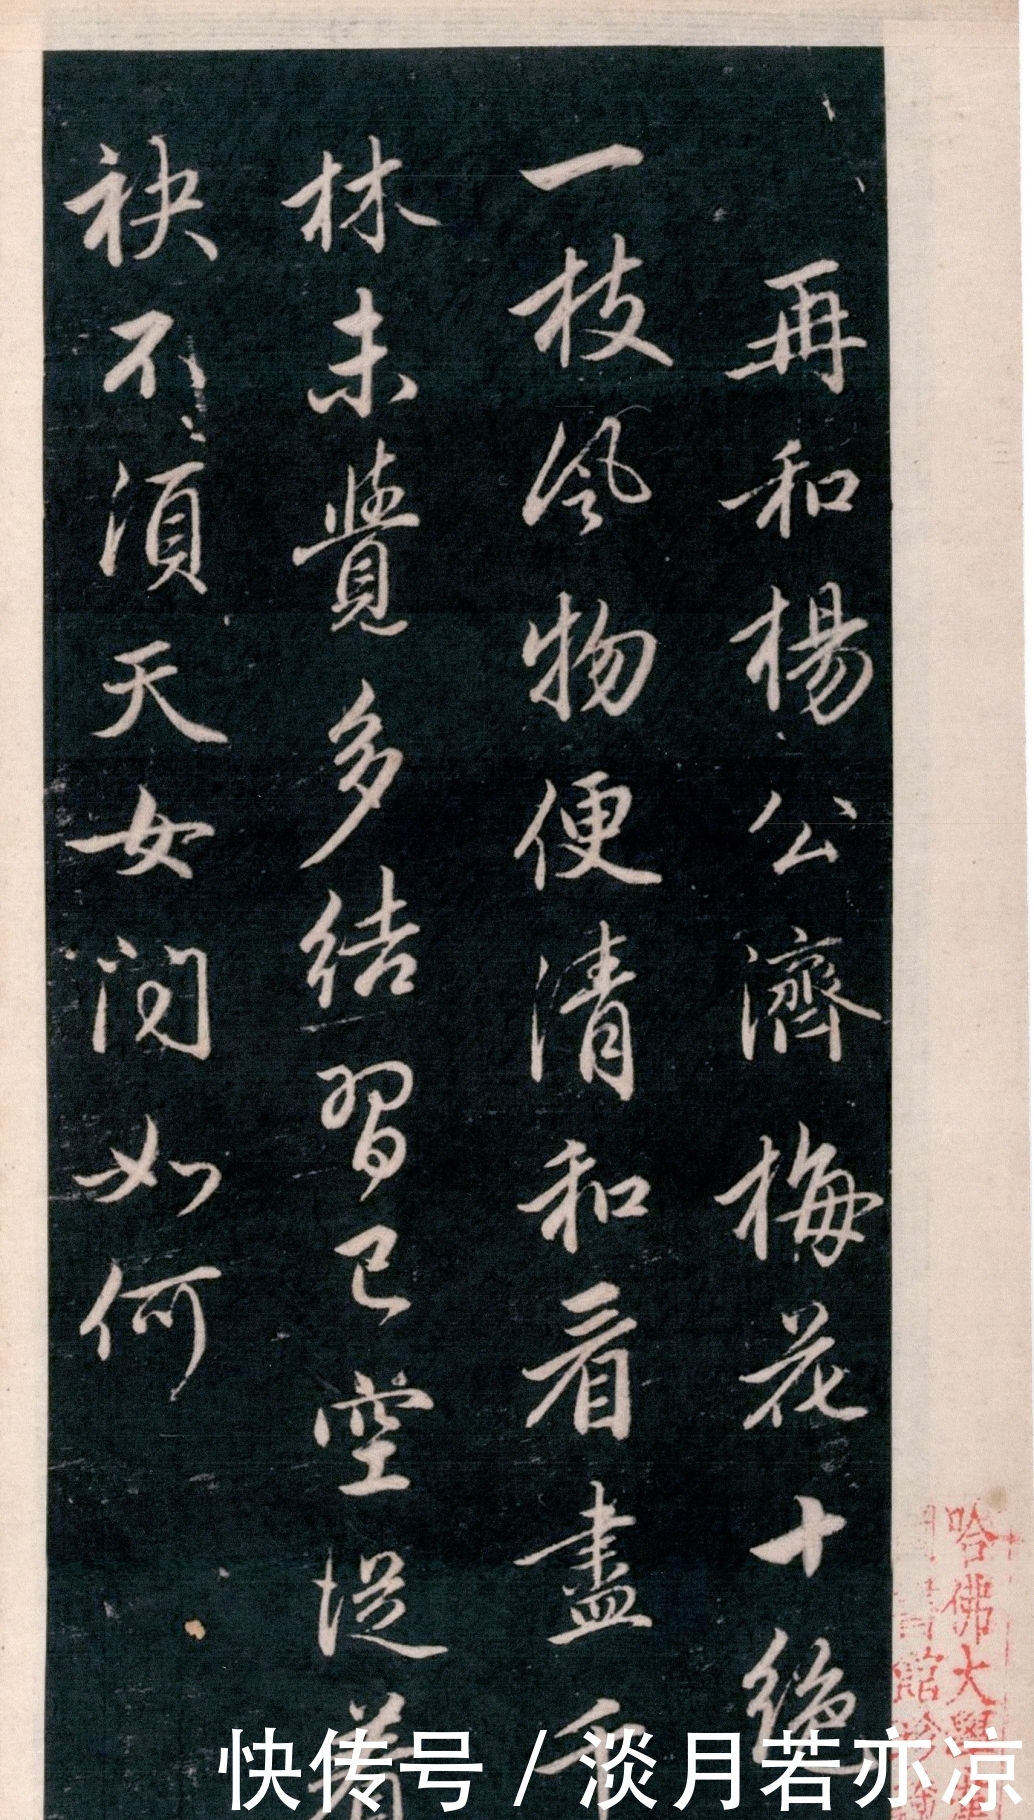 再和楊公濟梅花十絕
一枝風物便清和看盡千
林未覺多結習已空從着
袂不須天女問如何
哈佛大學
快传号 / 淡月若亦凉